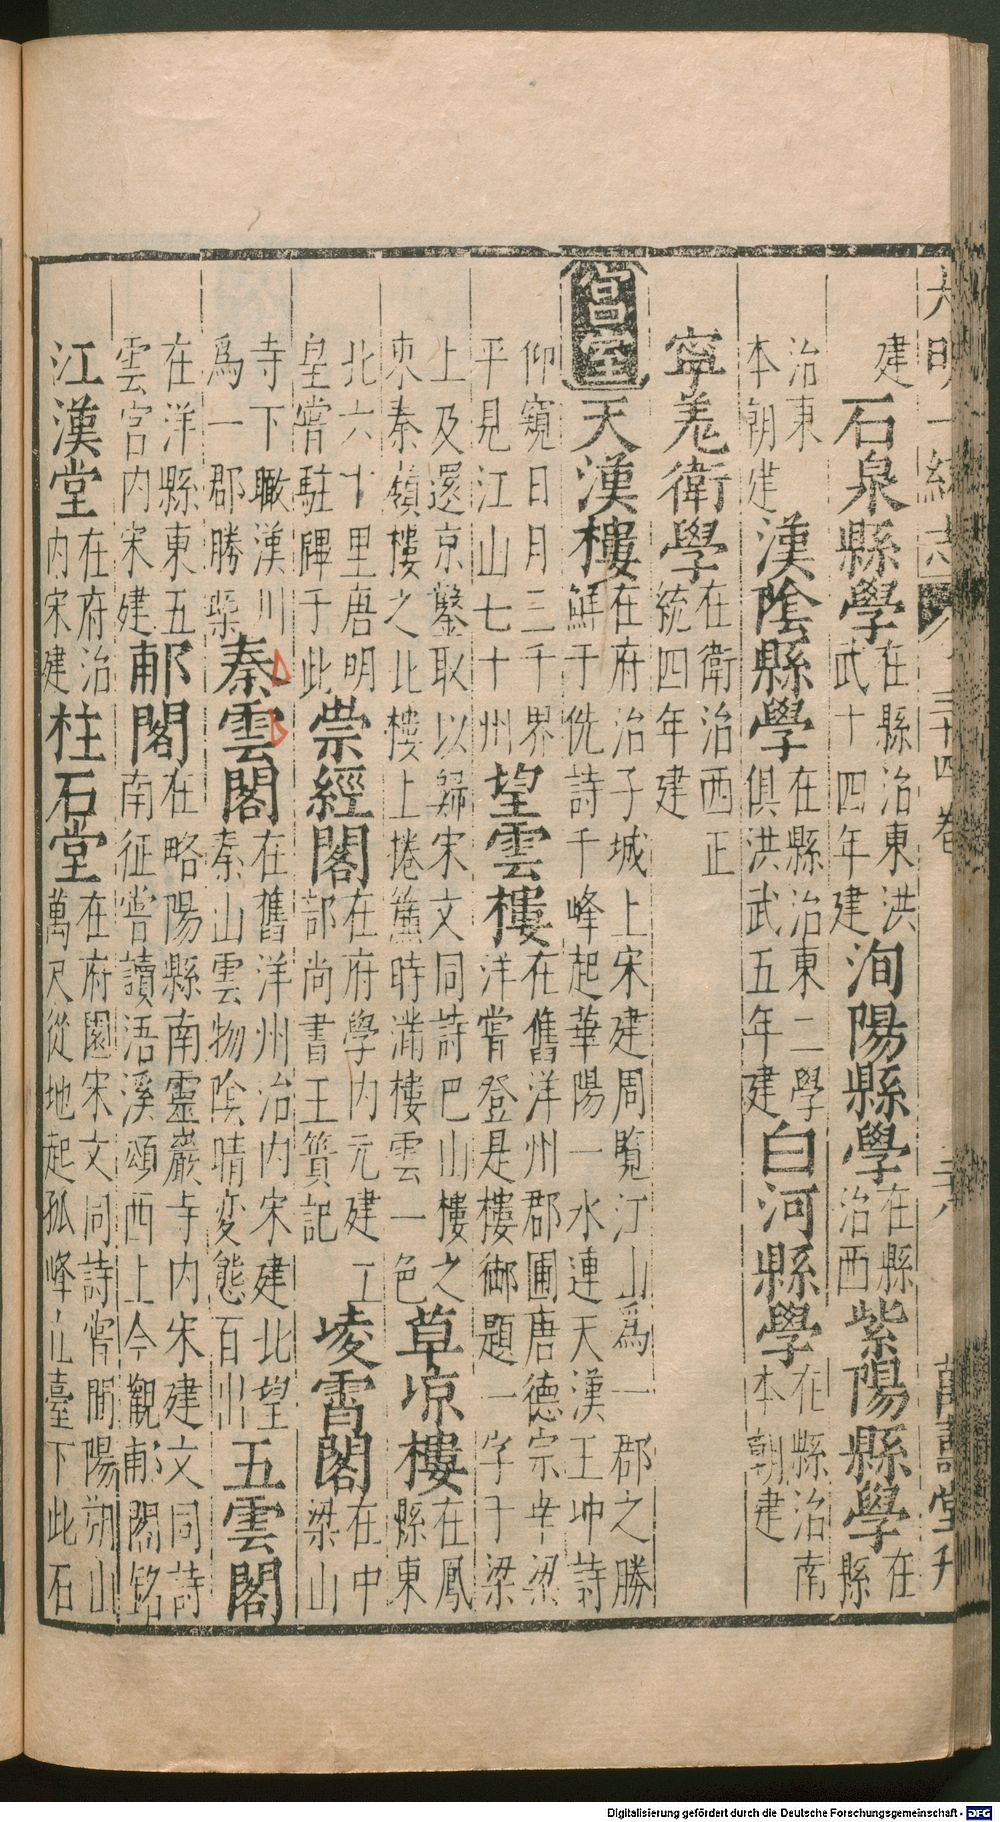 大明一統志 三十四卷 萬壽堂刊
建石泉縣學在縣治東洪武十四年建洵陽縣學在縣治西紫陽縣學在縣
治東本朝建漢陰縣學在縣治東二學俱洪武五年建白河縣學在縣治南本朝建
寧羌衛學在衛治西正統四年建
宮室天漢樓在府治子城上宋建周覽江山爲一郡之勝鮮于侁詩千峰起華陽一水連天漢王坤詩
仰窺日月三千界平見江山七十州望雲樓在舊洋州郡圃唐德宗幸梁洋嘗登是樓御題一字于梁
上及還京鑿取以歸宋文同詩巴山樓之東秦嶺樓之北樓上捲簾時滿樓雲一色草凉樓在鳳縣東
北六十里唐明皇嘗駐蹕于此崇經閣在府學内元建工部尚書王篔記凌霄閣在中梁山
寺下瞰漢川爲一郡勝槩秦雲閣在舊洋州治内宋建北望秦山雲物陰晴变態百出五雲閣
在洋縣東五雲宮内宋建郙閣在略陽縣南靈巖寺内宋建文同詩南征嘗讀浯溪頌西上今觀郙閣銘
江漢堂在府治内宋建柱石堂在府園宋文同詩嘗聞陽朔山萬尺從地起孤峰立臺下此石
Digitalisierung gefördert durch die Deutsche Forschungsgemeinschaft - DFG